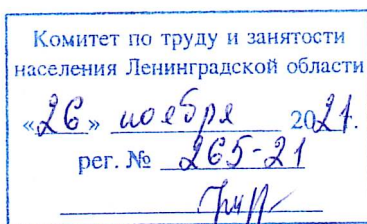 Комитет по труду и занятости
населения Ленинградской области
«26» ноября 2021.
рег. № 265-21